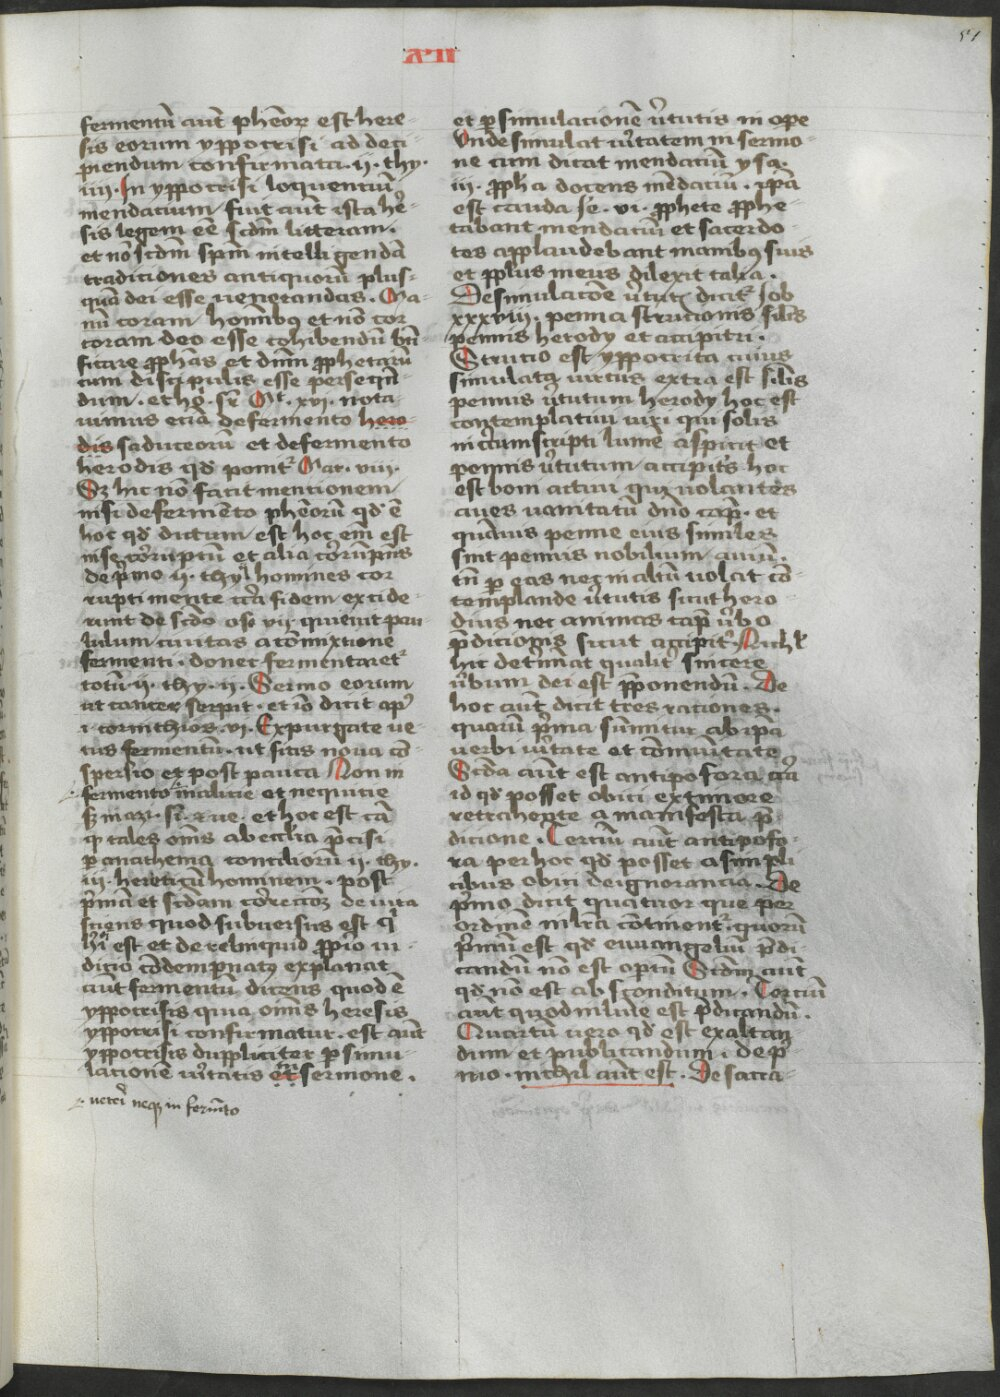 51
XII
fermentū aūt pheōꝝ est here-
sis eorum ypocrisi ad deci-
piendum confirmata. ii. thy.
iiii. In ypocrisi loquentiū
mendacium fuit aūt ista he-
sis legem eē scdm litteram.
et nō scdm spm intelligendā
tradiciones antiquorū plus-
quā dei esse venerandas. Ma-
nū coram hominibꝰ et nō cor
coram deo esse cohibendū bn̄
ficare ꝓphās et dnm ꝓphetarū
cum discipulis esse persequen-
dum. et hō. sr̄ Mt. xvi. nota-
uimus eciā de fermento hero-
dis saduceorū et de fermento
herodis qd ponit᷑ Mar. viii.
Sꝫ hic nō facit mentionem
nisi de fermēto pheorū qd ē
hoc qd dictum est hoc em̄ est
in se corruptū et alia corrūpens
de p̄mo ii. thy homines cor
rupti mente circa fidem excide-
runt de scdo ose vii. quieuit pau
lulum ciuitas a cōmixtione
fermenti. donec fermentaret᷑
totū. ii. thy. ii. Sermo eorum
ut cancer serpit. et iō dicit apꝰ
i. corinthios. vi. Expurgate ve-
tus fermentū. ut sitis noua cō-
spersio et post pauca Non in
fermento malicie et nequitie
sꝫ in azi. si. & ve. et hoc est cā
ꝙ tales om̄s ab ecclia p̄cisi
ꝑ anathema conciliorū ii. thy.
iii. hereticū hominem. post
p̄mā et scdam correccōꝫ deuita
sciens quod subuersus est qͥ
hͥ est et derelinquid ꝓprio iu-
dicio cōdempnatꝰ explanat
aūt fermentū dicens quod ē
ypocrisis quia om̄is heresis
ypocrisi confirmatur. est aūt
ypocrisis duppliciter ꝑ simu-
lationē veritatis in sermone.
veteri neqꝫ in fermēto
et ꝑ simulacionē v̄tutis in ope
Vnde simulat v̄itatem in sermo-
ne cum dicat mendaciū ysa.
iii. ꝓpha docens mēdaciū. ipā
est cauda Je. vi. ꝓphete ꝓphe-
tabant mendaciū et sacerdo-
tes applaudebant manibꝰ suis
et pplus meus dilexit talia.
De simulacōe v̄tutꝭ dicit᷑ Job
xxxviii. penna strucionis silis
pennis herody et accipitri.
Strucio est ypocrita cuius
simulata virtus extra est silis
pennis v̄tutum herody hoc est
contemplatiui viri qui solis
incircumscripti lumē aspicit et
pennis v̄tutum accipitris hoc
est boni actiui qui volantes
aues vanitatū dno capit. et
quāuis penne eius similes
sint pennis nobilium auiū.
tn̄ ꝑ eas nec in altū volat cō-
templande v̄tutis sicut hero-
dius nec animas capit v̄bo
p̄dicionis sicut accipit᷑. Nichil
hic det̄minat qualit̄ sincere
v̄bum dei est ꝓponendū. De
hoc aūt dicit tres raciones.
quarū p̄ma sumitur ab ipā
verbi v̄itate et cōmunitate
Scda aūt est antipofora circa
id qd posset obici ex timore
retrahente a manifesta p̄-
dicione. Terciū aūt antipofo-
ra per hoc qd posset a simpli
cibus obici de ignorancia. De
p̄mo dicit quatuor que per
ordinē in lrā cōtinent᷑. quorū
p̄mū est qd euuangeliū p̄di-
candū non est optū Scdm aūt
qd non est absconditum. Terciū
aūt quod in lumine est p̄dicandū.
Quartū vero qd est exaltan-
dum et publicandum. de p̄-
mo. nichil aūt est. De sacra-